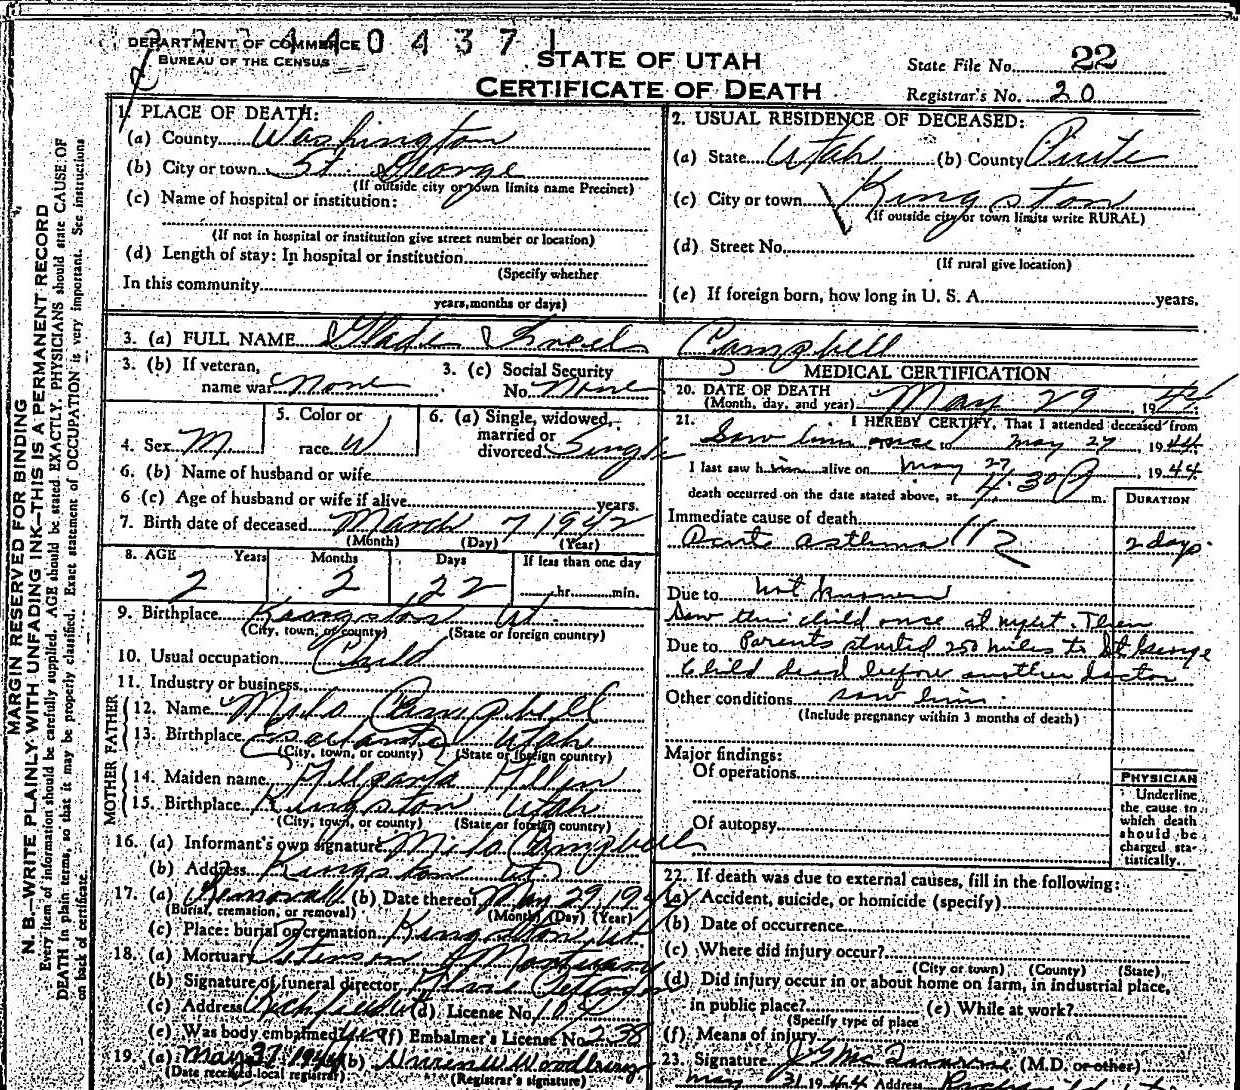 DEPARTMENT OF COMMERCE
BUREAU OF THE CENSUS
440437
STATE OF UTAH
CERTIFICATE OF DEATH
State File No. 22
Registrar's No. 20
MARGIN RESERVED FOR BINDING
N. B.—WRITE PLAINLY WITH UNFADING INK—THIS IS A PERMANENT RECORD
Every item of information should be carefully supplied. AGE should be stated EXACTLY. PHYSICIANS should state CAUSE OF
DEATH in plain terms, so that it may be properly classified. Exact statement of OCCUPATION is very important. See instructions
on back of certificate.
1. PLACE OF DEATH:
(a) County Washington
(b) City or town St. George
(If outside city or town limits name Precinct)
(c) Name of hospital or institution:
(If not in hospital or institution give street number or location)
(d) Length of stay: In hospital or institution
(Specify whether
In this community
years, months or days)
2. USUAL RESIDENCE OF DECEASED:
(a) State Utah (b) County Piute
(c) City or town Kingston
(If outside city or town limits write RURAL)
(d) Street No.
(If rural give location)
(e) If foreign born, how long in U. S. A. years.
3. (a) FULL NAME Campbell
3. (b) If veteran,
name war none
3. (c) Social Security
No. None
4. Sex M.
5. Color or
race W
6. (a) Single, widowed,
married or
divorced Single
6. (b) Name of husband or wife
6 (c) Age of husband or wife if alive years.
7. Birth date of deceased March 7 1942
(Month) (Day) (Year)
8. AGE Years Months Days If less than one day
2 2 22 hr. min.
9. Birthplace Kingston Ut.
(City, town, or county) (State or foreign country)
10. Usual occupation Child
11. Industry or business
FATHER
12. Name Milo Campbell
13. Birthplace Escalante Utah
(City, town, or county) (State or foreign country)
MOTHER
14. Maiden name Allen
15. Birthplace Kingston Utah
(City, town, or county) (State or foreign country)
16. (a) Informant's own signature Milo Campbell
(b) Address Kingston Ut
17. (a) Removal (b) Date thereof May 29, 194
(Burial, cremation, or removal) (Month) (Day) (Year)
(c) Place: burial or cremation Kingston, Ut.
18. (a) Mortuary Mortuary
(b) Signature of funeral director
(c) Address Richfield Ut (d) License No. 104
(e) Was body embalmed yes (f) Embalmer's License No. 238
19. (a) May 31, 1944 (b) Woodbury
(Date received local registrar) (Registrar's signature)
MEDICAL CERTIFICATION
20. DATE OF DEATH May 29, 1944
(Month, day, and year)
21. I HEREBY CERTIFY, That I attended deceased from
Saw him once to May 27, 1944
I last saw him alive on May 27 1944
death occurred on the date stated above, at 4:30 P m.
DURATION
Immediate cause of death
Acute asthma 112 2 days.
Due to not known
Saw this child once at nyert. Then
Due to Parents started 250 miles to St George
Child dead before another doctor
Other conditions saw him.
(Include pregnancy within 3 months of death)
Major findings:
Of operations
Of autopsy
PHYSICIAN
Underline
the cause to
which death
should be
charged sta-
tistically.
22. If death was due to external causes, fill in the following:
(a) Accident, suicide, or homicide (specify)
(b) Date of occurrence
(c) Where did injury occur?
(City or town) (County) (State)
(d) Did injury occur in or about home on farm, in industrial place,
in public place? (e) While at work?
(Specify type of place
(f) Means of injury
23. Signature (M.D. or other)
May 31, 1944 Address